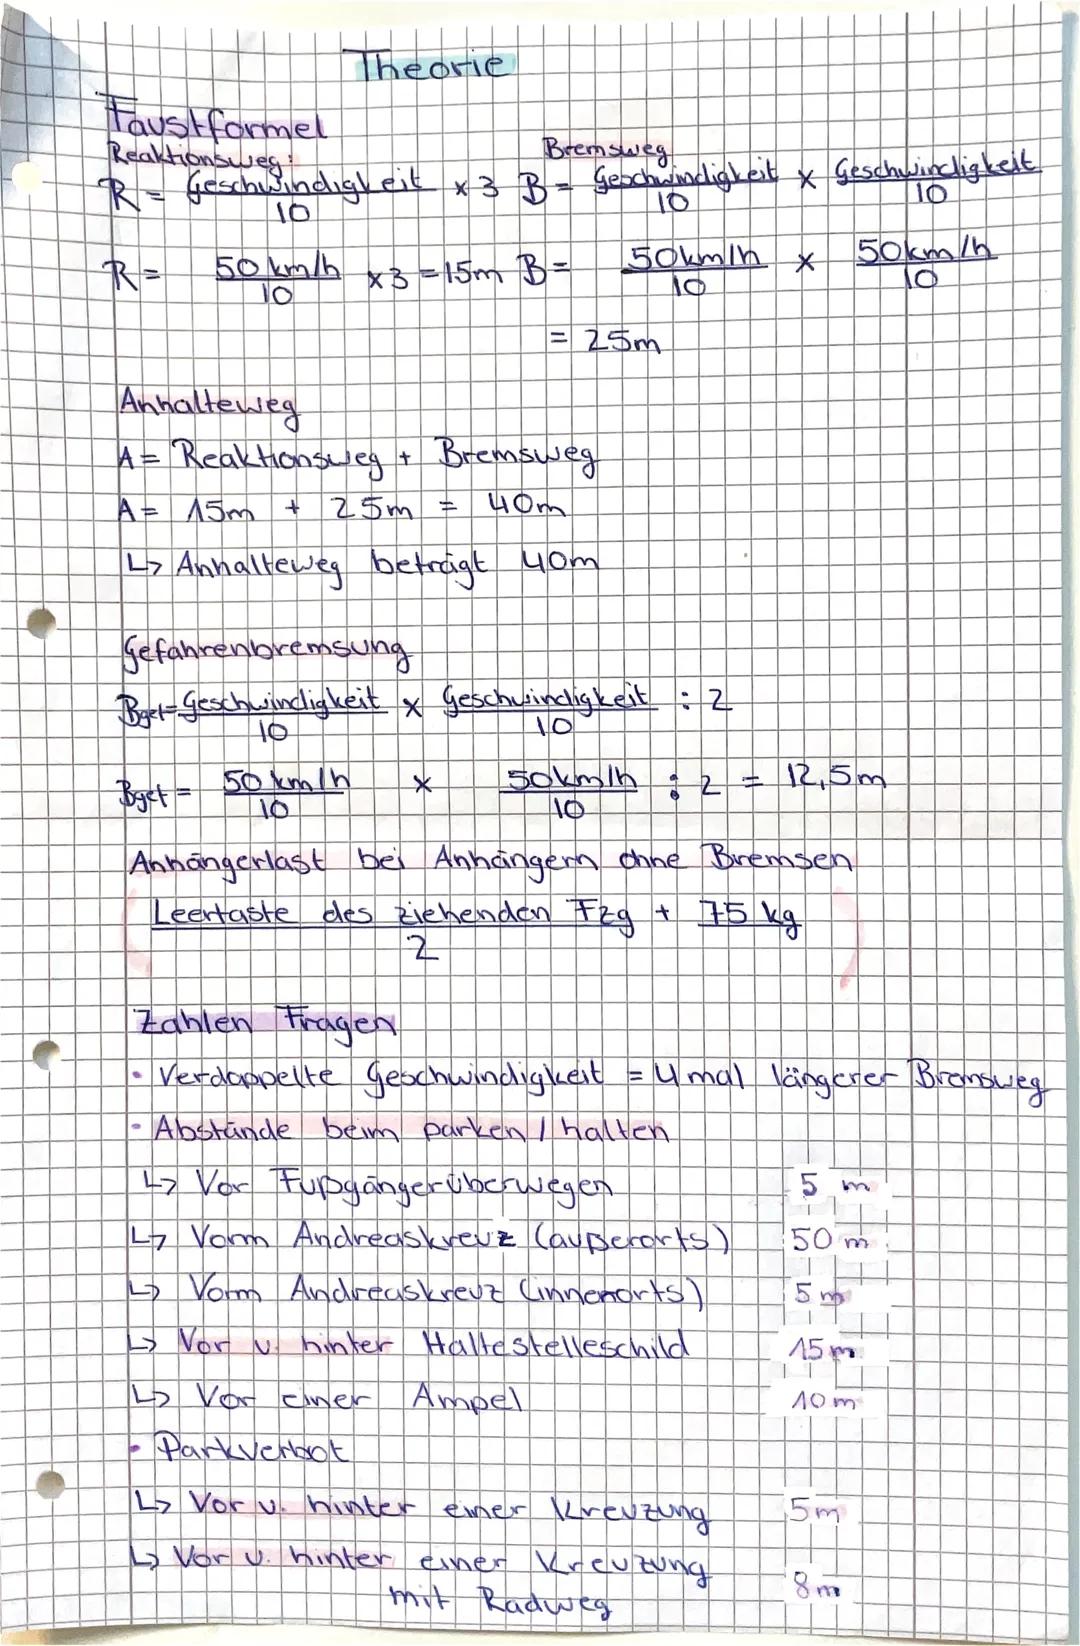 Theorie
Faustformel
Reaktionsweg: Bremsweg
R = Geschwindigkeit/10 x 3 B = Geschwindigkeit/10 x Geschwindigkeit/10
R = 50 km/h/10 x 3 = 15m B = 50km/h/10 x 50km/h/10
= 25m
Anhalteweg
A = Reaktionsweg + Bremsweg
A = 15m + 25m = 40m
↳ Anhalteweg beträgt 40m
Gefahrenbremsung
Bgef = Geschwindigkeit/10 x Geschwindigkeit/10 : 2
Bgef = 50 km/h/10 x 50km/h/10 : 2 = 12,5m
Anhängerlast bei Anhängern ohne Bremsen
Leertaste des ziehenden Fzg + 75 kg
2
Zahlen Fragen
• Verdoppelte Geschwindigkeit = 4 mal längerer Bremsweg
• Abstände beim parken / halten
↳ Vor Fußgängerüberwegen 5 m
↳ Vorm Andreaskreuz (außerorts) 50 m
↳ Vorm Andreaskreuz (innerorts) 5 m
↳ Vor u. hinter Haltestelleschild 15 m
↳ Vor einer Ampel 10 m
• Parkverbot
↳ Vor u. hinter einer Kreuzung 5m
↳ Vor u. hinter einer Kreuzung
mit Radweg 8 m